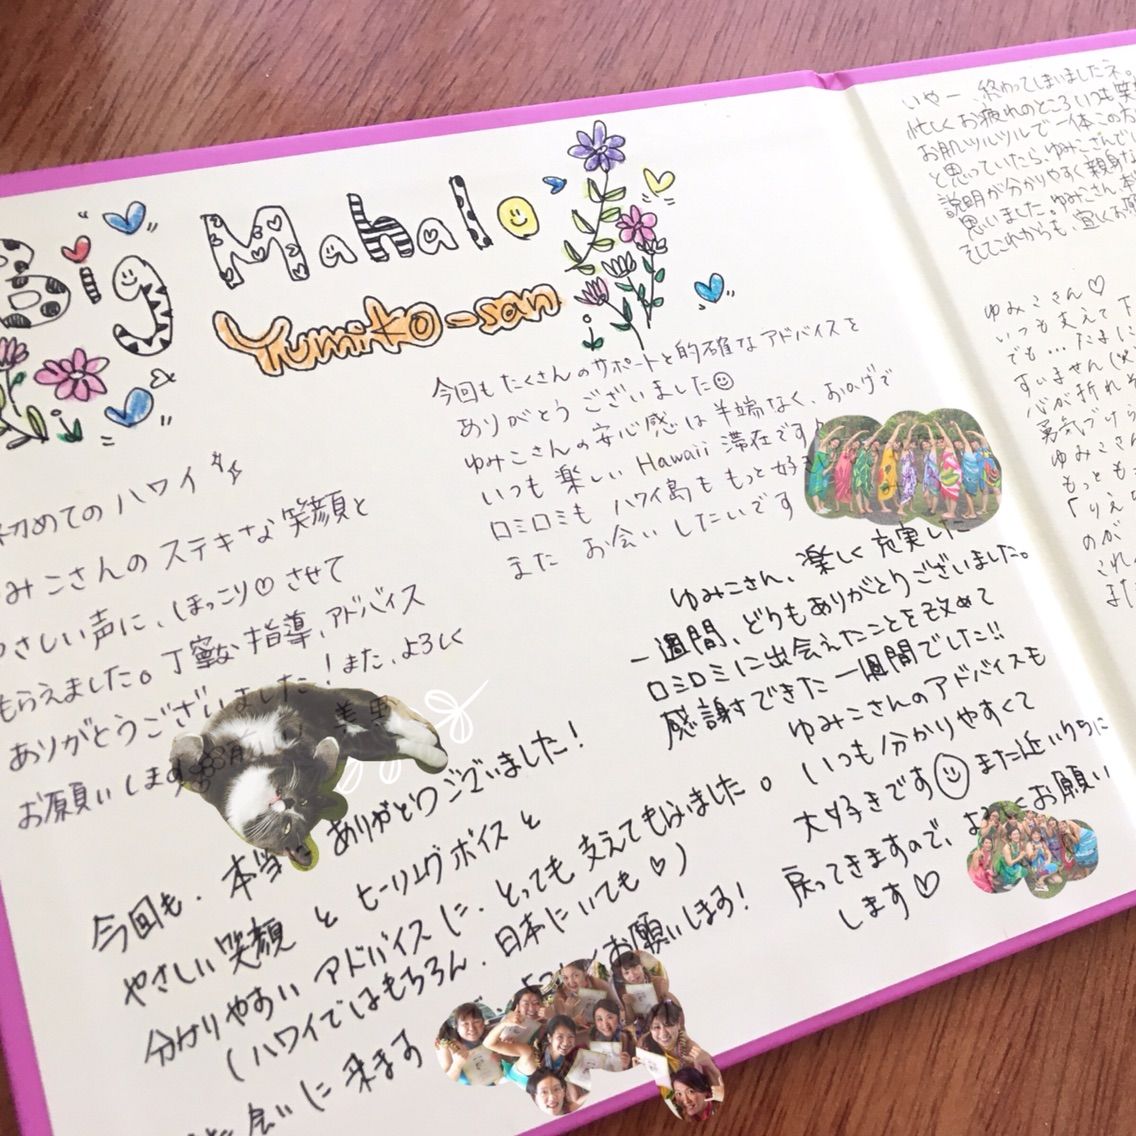 Big Mahalo
Yumiko-san
今回もたくさんのサポートと的確なアドバイスを
ありがとうございました
ゆみこさんの安心感は半端なく、おかげで
いつも楽しいHawaii滞在です♪
ロミロミもハワイ島ももっと好き
また お会いしたいです
初めてのハワイ
ゆみこさんのステキな笑顔と
やさしい声に、ほっこり♡させて
もらえました。丁寧な指導、アドバイス
ありがとうございました！また、よろしく
お願いします
美亜
ゆみこさん、楽しく充実した
一週間、どうもありがとうございました。
ロミロミに出会えたことを改めて
感謝できた一週間でした!!
ゆみこさんのアドバイスも
いつも分かりやすくて
大好きです また近いうちに
戻ってきますので、お願い
します♡
今回も、本当 ありがとうございました！
やさしい笑顔とヒーリングボイスと
分かりやすいアドバイスに、とっても支えてもらいました。
(ハワイではもちろん、日本にいても♡)
会いに来ます お願いします！
いやー、終わってしまいましたネ。
忙しくお疲れのところいつも笑
お肌ツルツルで一体この方
と思っていたら、ゆみこさんで
説明が分かりやすく親身な
思いました。ゆみこさん、本
そしてこれからも、宜しくお願
ゆみこさん♡
いつも支えて下
でも…たまに
すいません(笑
心が折れそ
勇気づけら
ゆみこさん
もっともっ
「りえ
のが
され
また